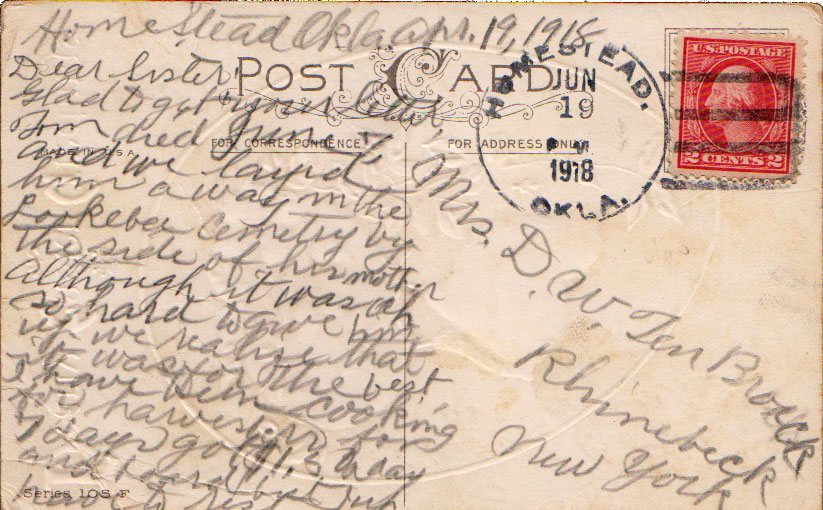 Homestead Okla Apr. 19, 1918
Dear Sister
Glad to get your card
Tom died June 7
and we layed
him away in the
Lookeba Cemetry by
the side of his mother
although it was oh
so hard to give him
up we realize that
it was for the best
I have been cooking
for harvesters for
days got $1.50 a day
and board but I
have to rest
POST CARD
FOR CORRESPONDENCE
FOR ADDRESS ONLY
MADE IN U.S.A.
Series 105 F
HOMESTEAD,
JUN
19
P M
1918
OKLA.
U.S. POSTAGE
2 CENTS 2
Mrs. D. W. Ten Broeck
Rhinebeck
New York